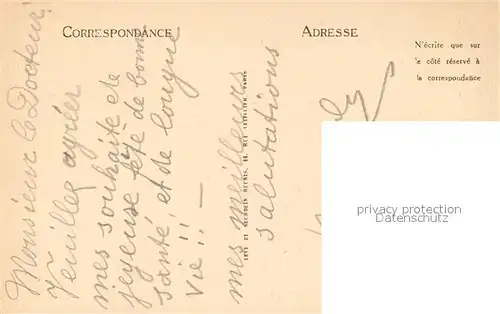 CORRESPONDANCE
ADRESSE
N'écrire que sur
le côté réservé à
la correspondance
Monsieur le Docteur!
Veuillez agréer
mes souhaits de
joyeuse fête de bonne
santé, et de longue
vie!! —
mes meilleurs
salutations
LEVY ET NEURDEIN REUNIS, 44, RUE LETELLIER, PARIS
privacy protection
www.delcampe.net